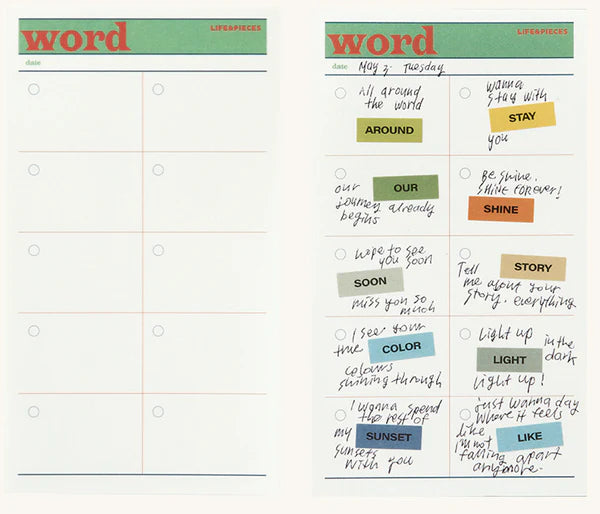 word
LIFE&PIECES
date
word
LIFE&PIECES
date May 3. Tuesday
All around
the world
AROUND
wanna
stay with
STAY
you
our
OUR
journey already
begins
Be shine.
SHINE FOREVER!
SHINE
to see
you soon
SOON
miss you so
much
STORY
Tell
me about your
story. everything
I see your
true
COLOR
colours
shining through
Light up
in the
dark
LIGHT
Light up!
I wanna spend
the rest of
my
SUNSET
sunsets
with you
just wanna day
where it feels
like
LIKE
I'm not
falling apart
anymore.